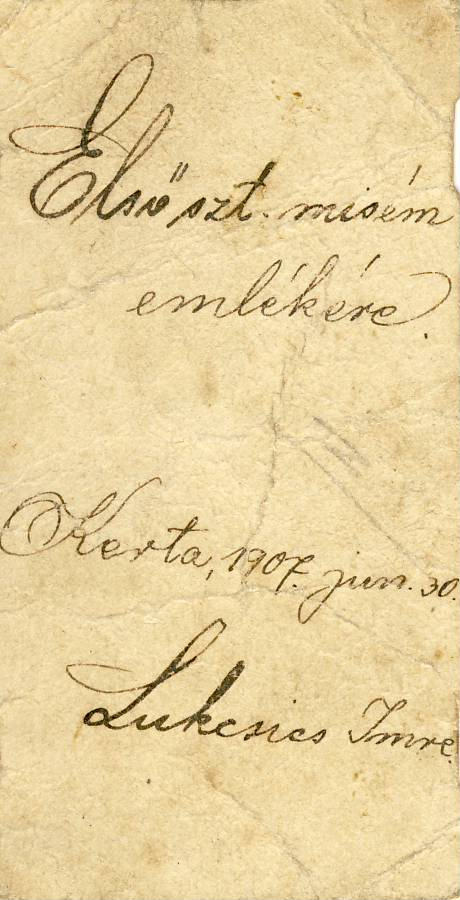 Első szt. misém
emlékére.
Kerta, 1907. jun. 30.
Lukcsics Imre